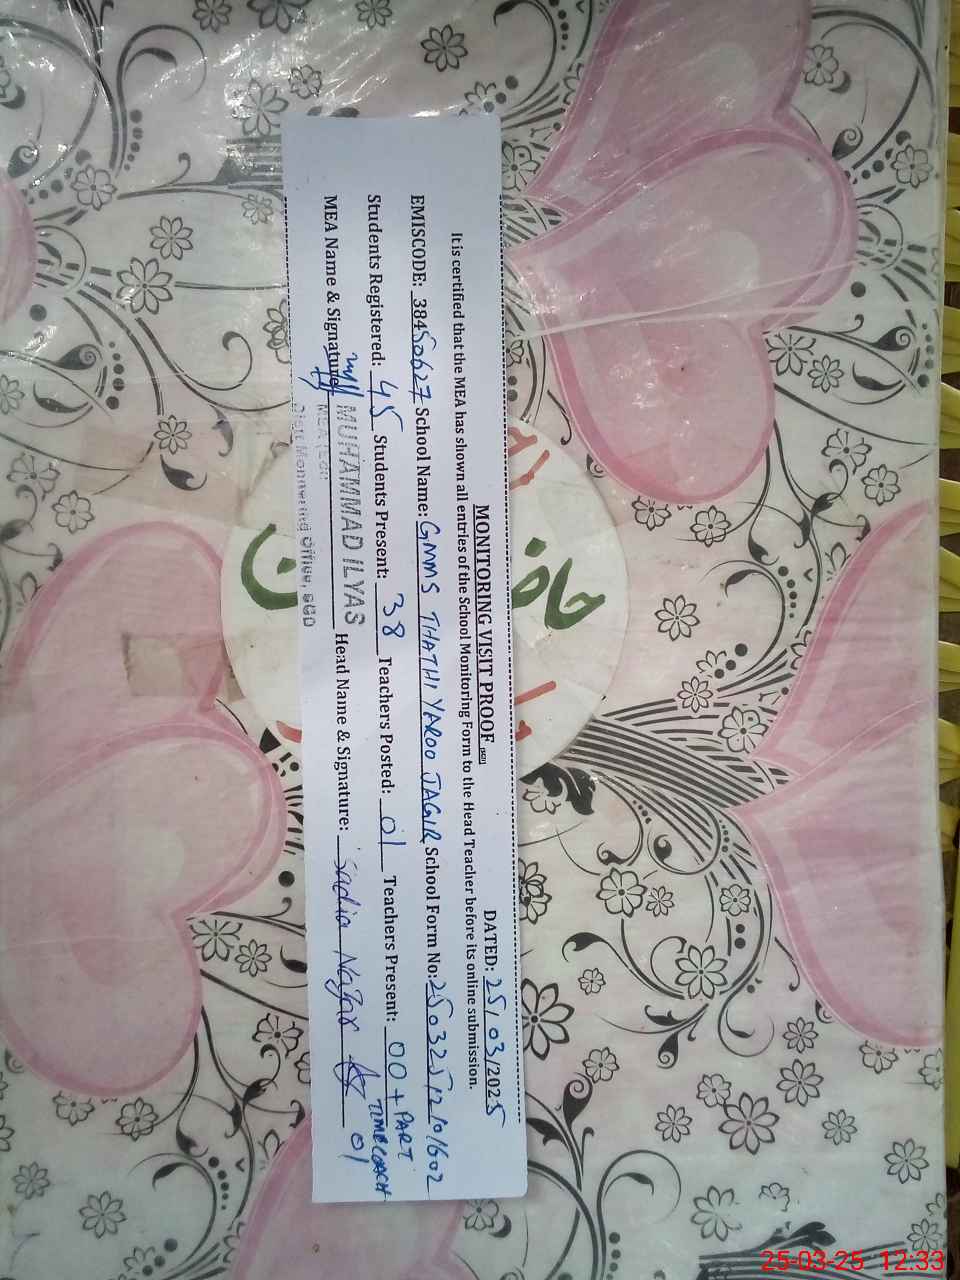 MONITORING VISIT PROOF
DATED: 25/03/2025
It is certified that the MEA has shown all entries of the School Monitoring Form to the Head Teacher before its online submission.
EMISCODE: 38450627 School Name: GMMS THATHI YAROO JAGIR School Form No: 25032512101602
Students Registered: 45 Students Present: 38 Teachers Posted: 01 Teachers Present: 00 + PART
TIME COACH
01
MEA Name & Signature: MUHAMMAD ILYAS Head Name & Signature: Sadia Nazar
Distt Monitoring Office, SGD
25-03-25 12:33